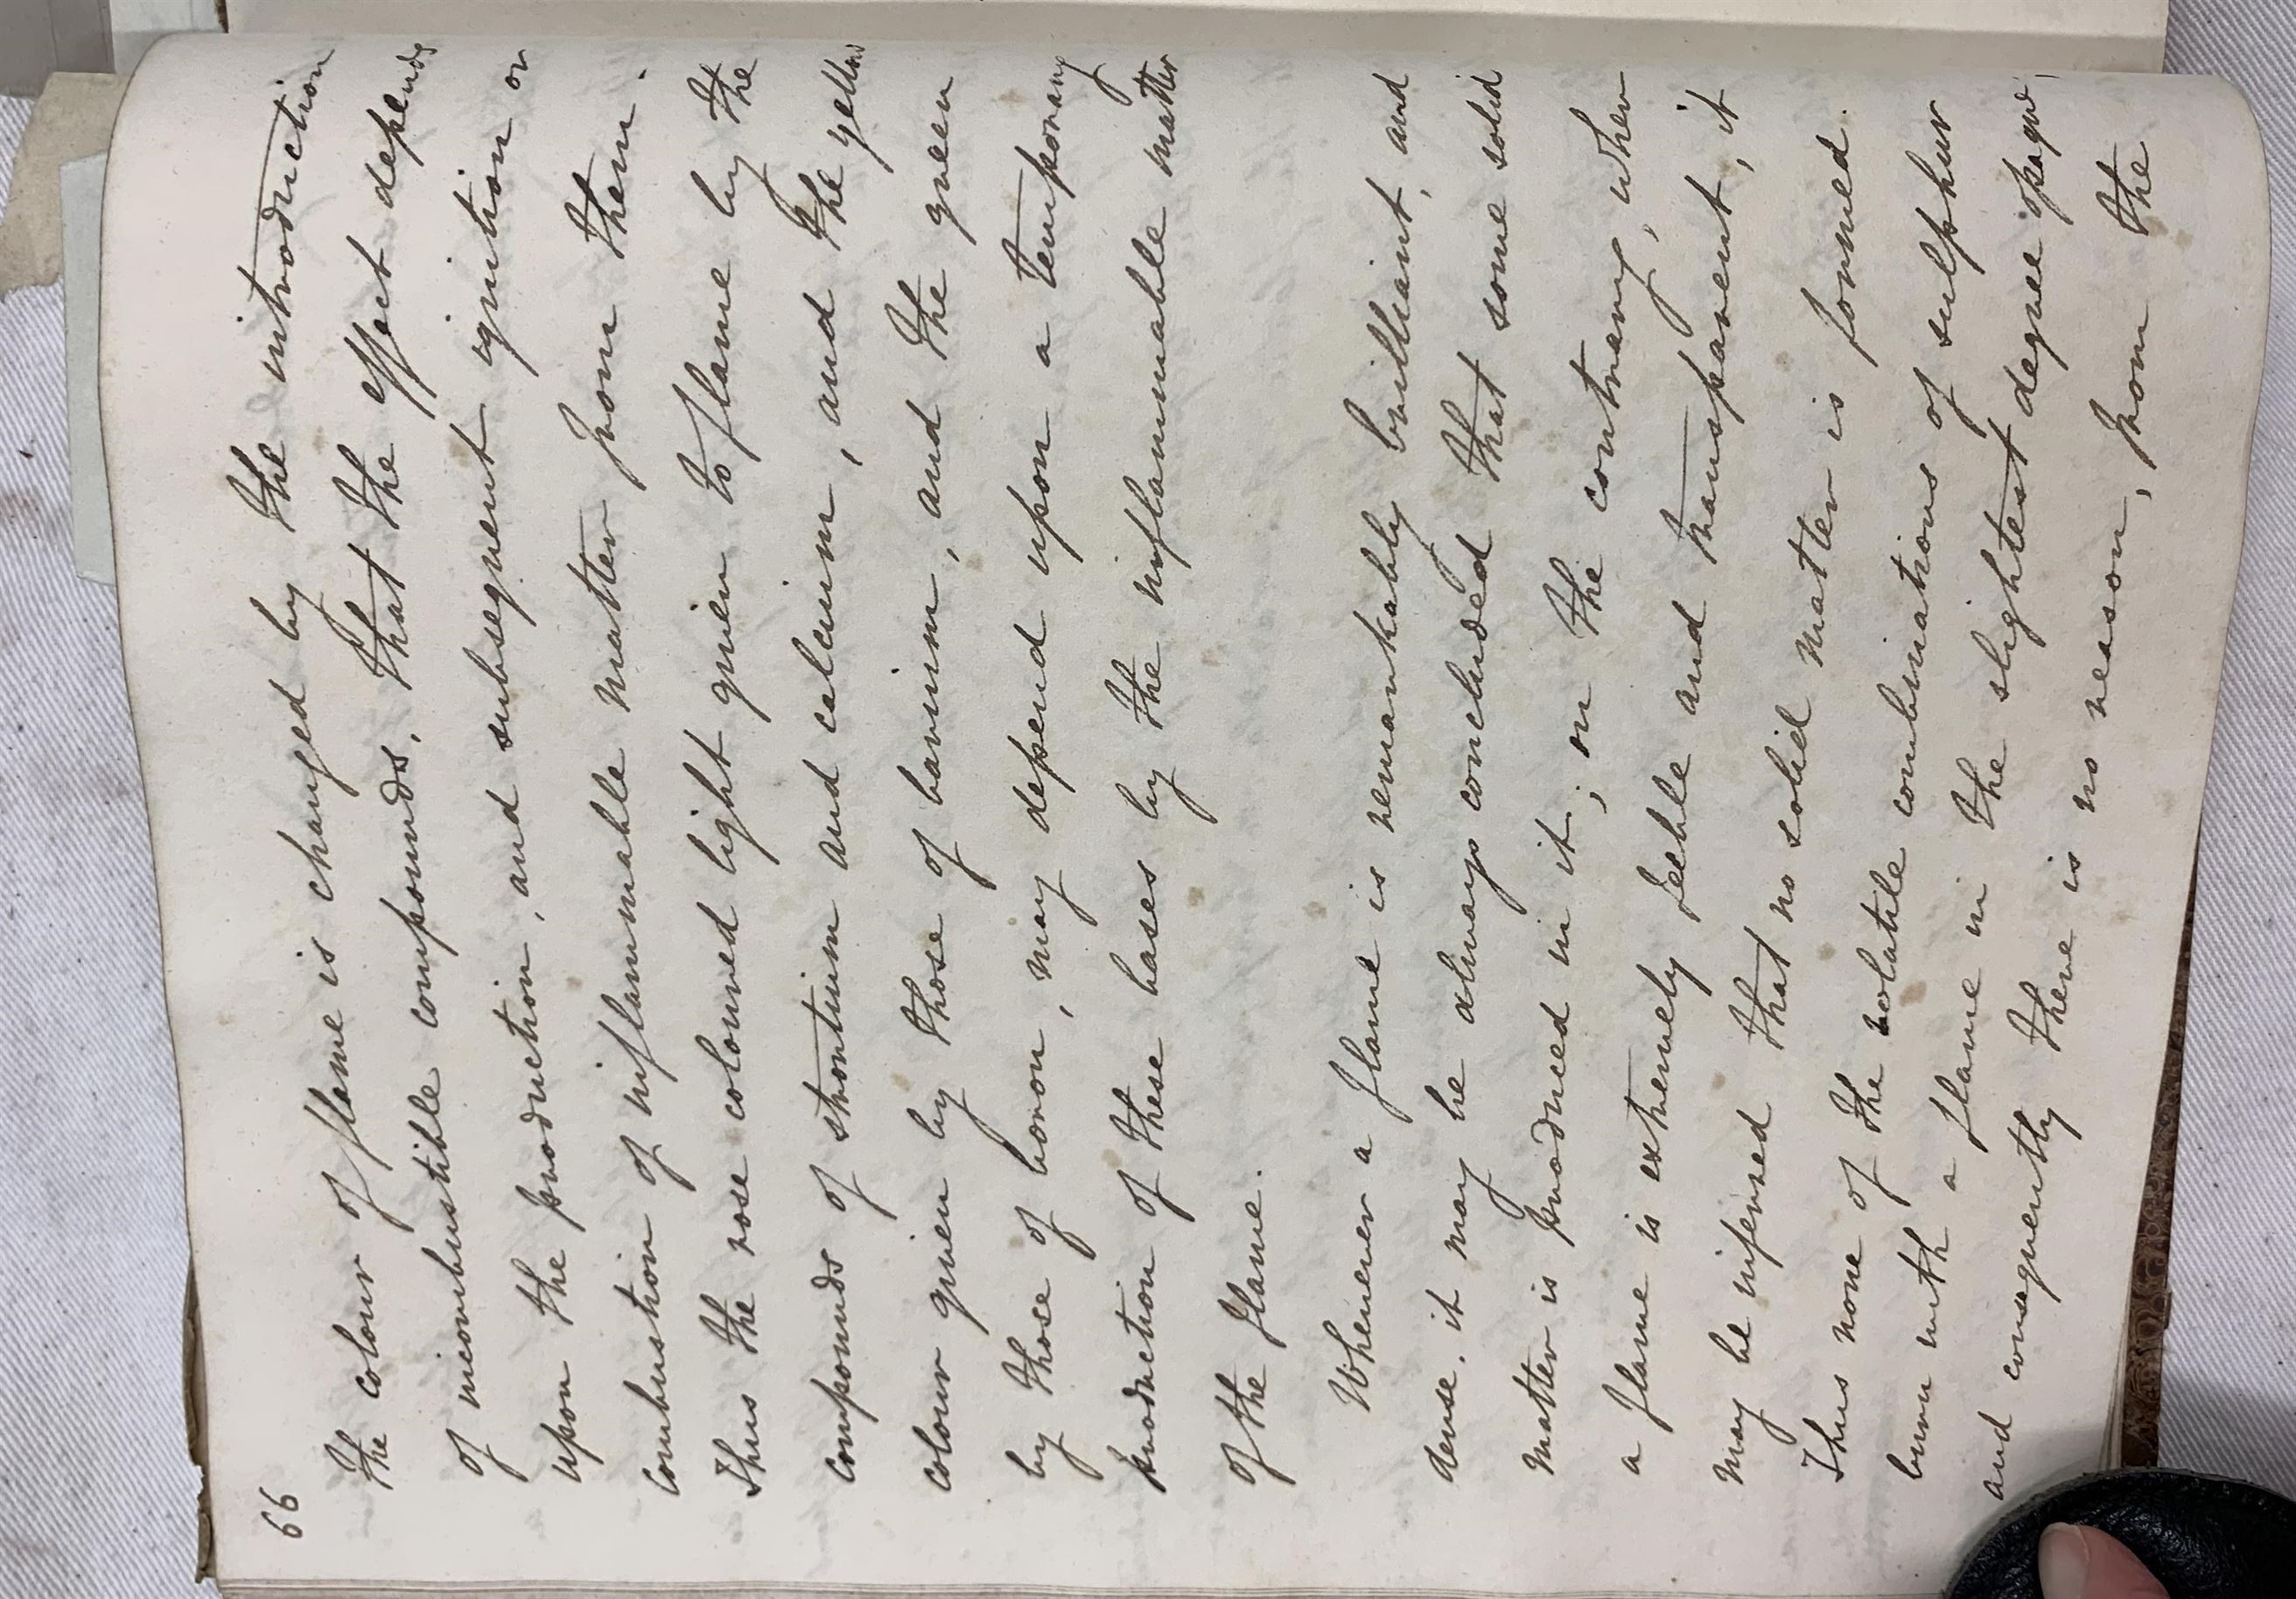 66
the colour of flame is changed by the introduction
of incombustible compounds, that the effect depends
upon the production, and subsequent ignition or
combustion of inflammable matter from them.
Thus the rose coloured light given to flame by the
compounds of strontium and calcium, and the yellow
colour given by those of barium, and the green
by those of boron, may depend upon a temporary
production of these bases by the inflammable matter
of the flame.
Whenever a flame is remarkably brilliant, and
dense, it may be always concluded that some solid
matter is produced in it; on the contrary, when
a flame is extremely feeble and transparent, it
may be inferred that no solid matter is formed.
Thus none of the volatile combinations of sulphur
burn with a flame in the slightest degree opaque,
and consequently there is no reason, from the